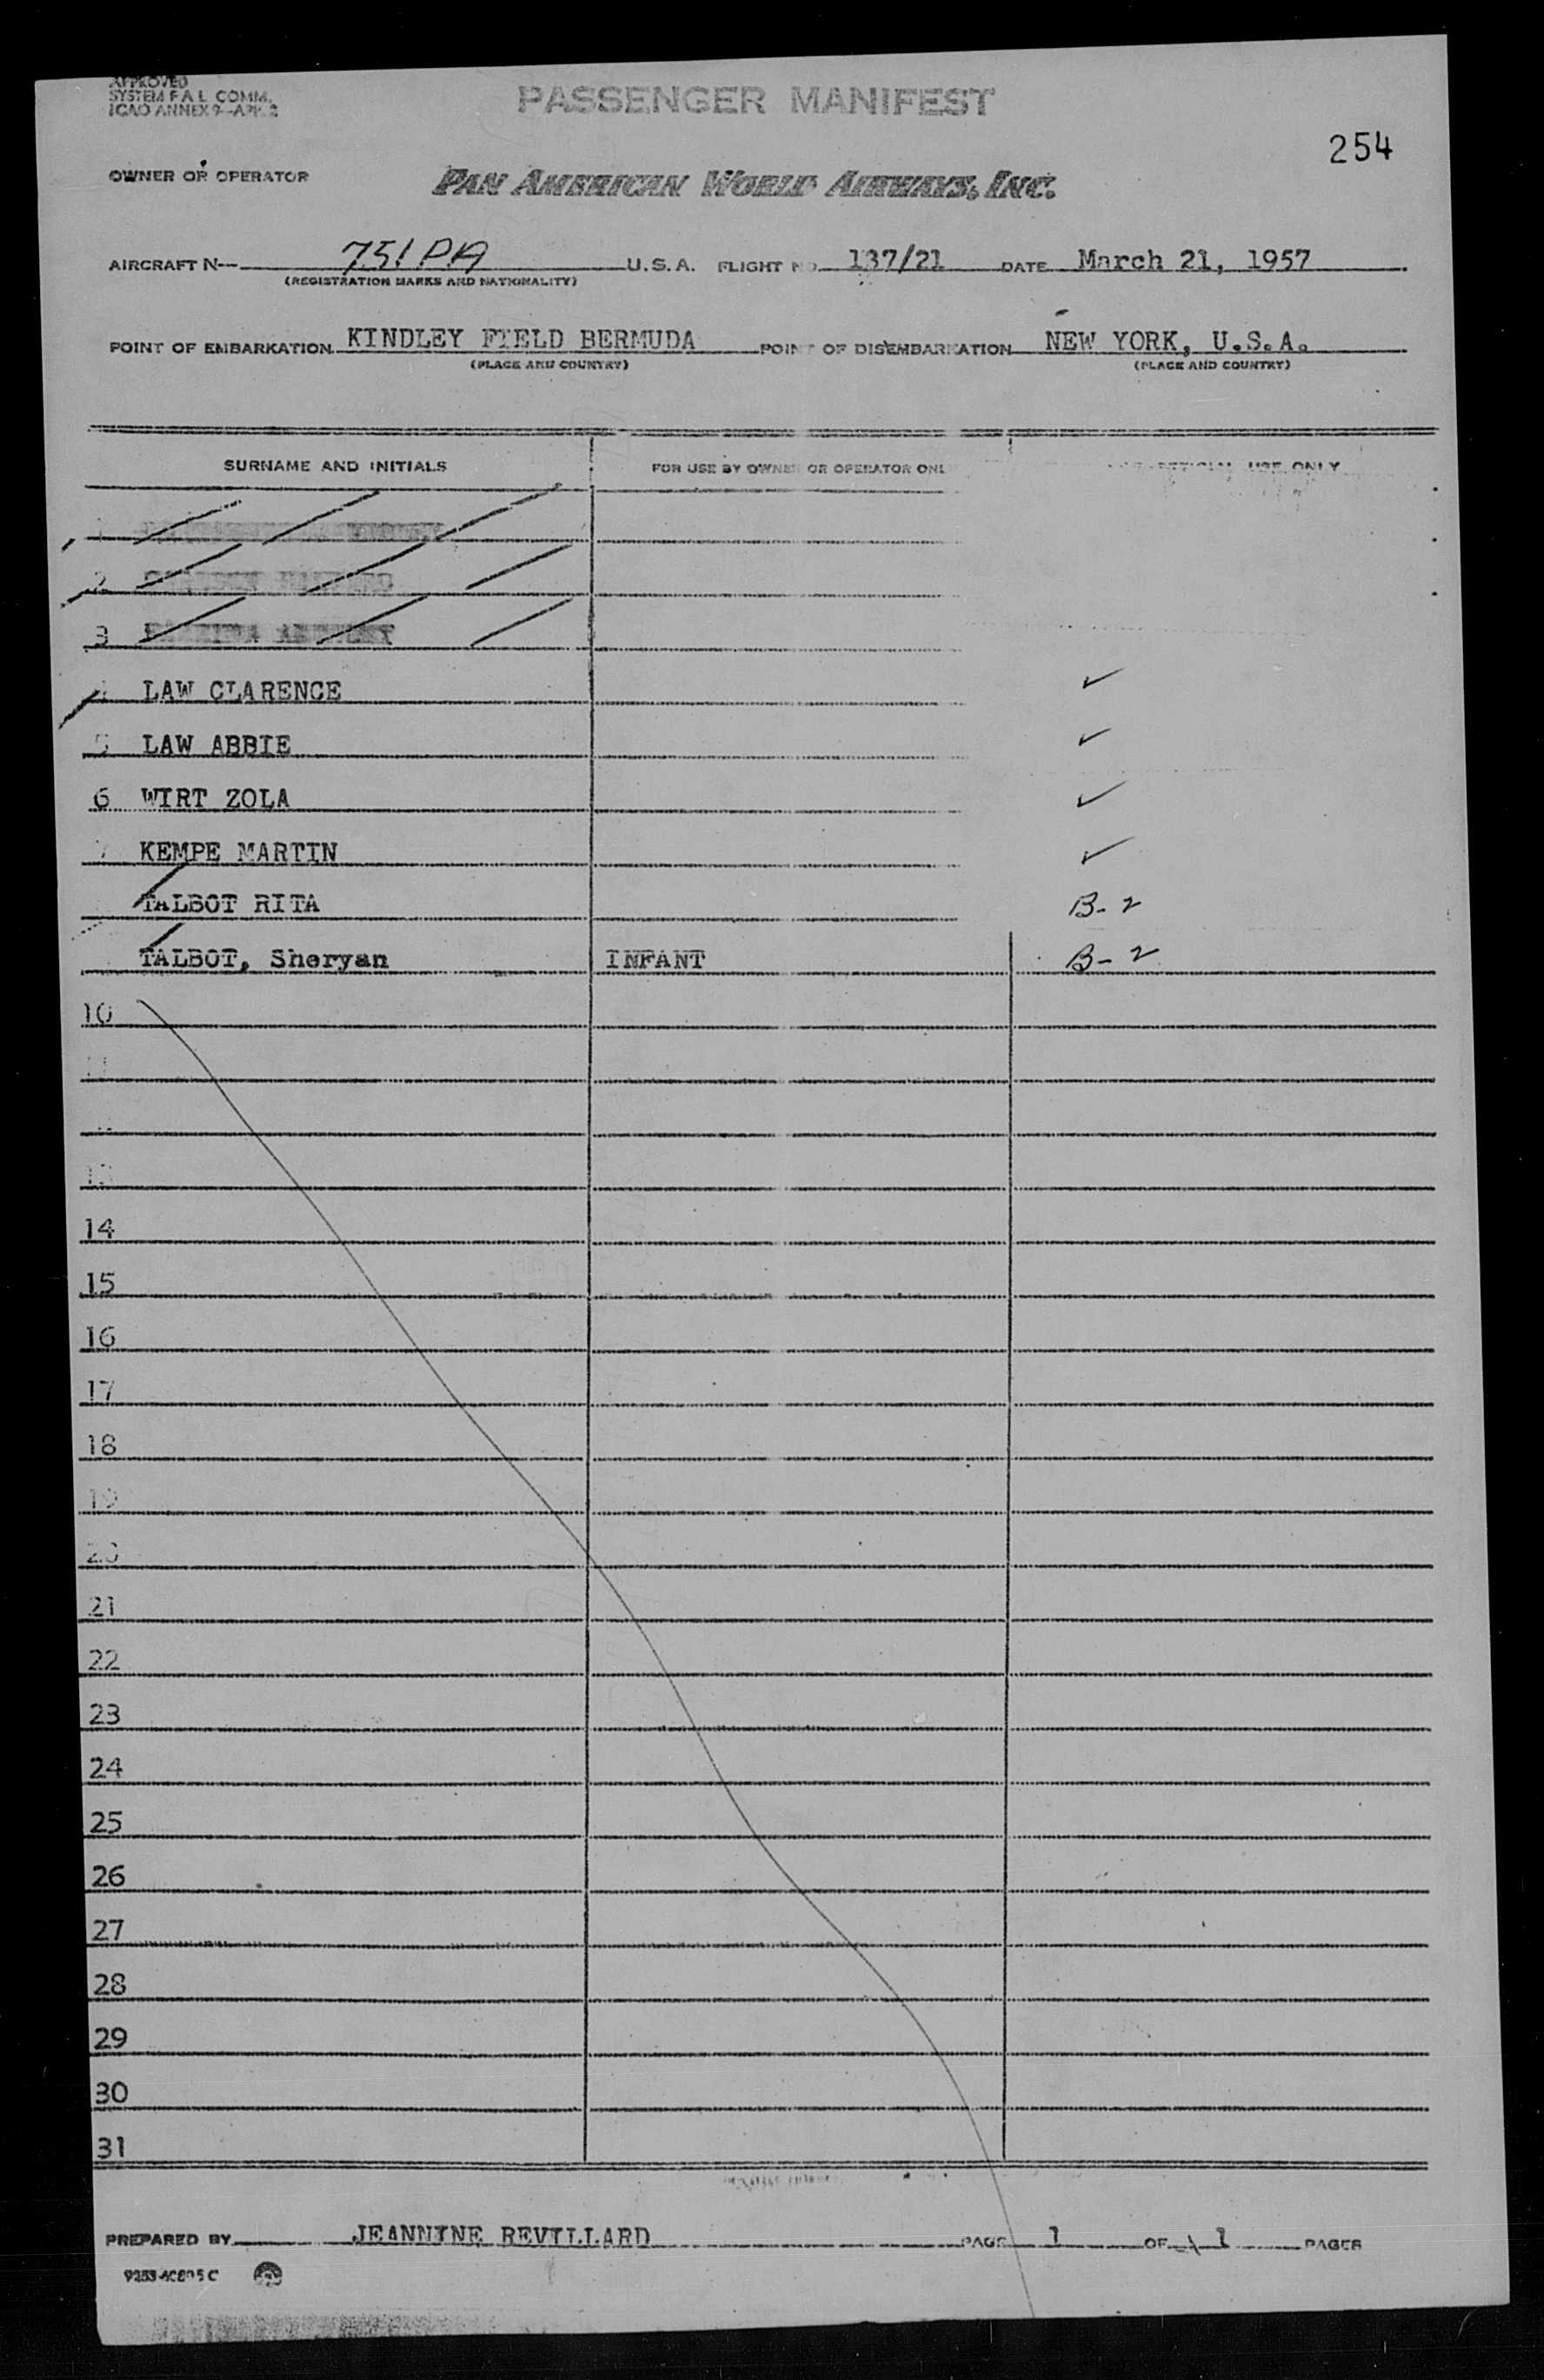 APPROVED
SYSTEM F A L COMM.
ICAO ANNEX 9-APP. 2
PASSENGER MANIFEST
254
OWNER OR OPERATOR PAN AMERICAN WORLD AIRWAYS, INC.
AIRCRAFT N- 751PA U.S.A. FLIGHT NO. 137/21 DATE March 21, 1957
(REGISTRATION MARKS AND NATIONALITY)
POINT OF EMBARKATION KINDLEY FIELD BERMUDA POINT OF DISEMBARKATION NEW YORK, U.S.A.
(PLACE AND COUNTRY) (PLACE AND COUNTRY)
SURNAME AND INITIALS FOR USE BY OWNER OR OPERATOR ONL OFFICIAL USE ONLY
1
2
3
4 LAW CLARENCE ✓
5 LAW ABBIE ✓
6 WIRT ZOLA ✓
7 KEMPE MARTIN ✓
TALBOT RITA B-2
TALBOT, Sheryan INFANT B-2
10
11
13
14
15
16
17
18
19
20
21
22
23
24
25
26
27
28
29
30
31
PREPARED BY JEANNINE REVILLARD PAGE 1 OF 1 PAGES